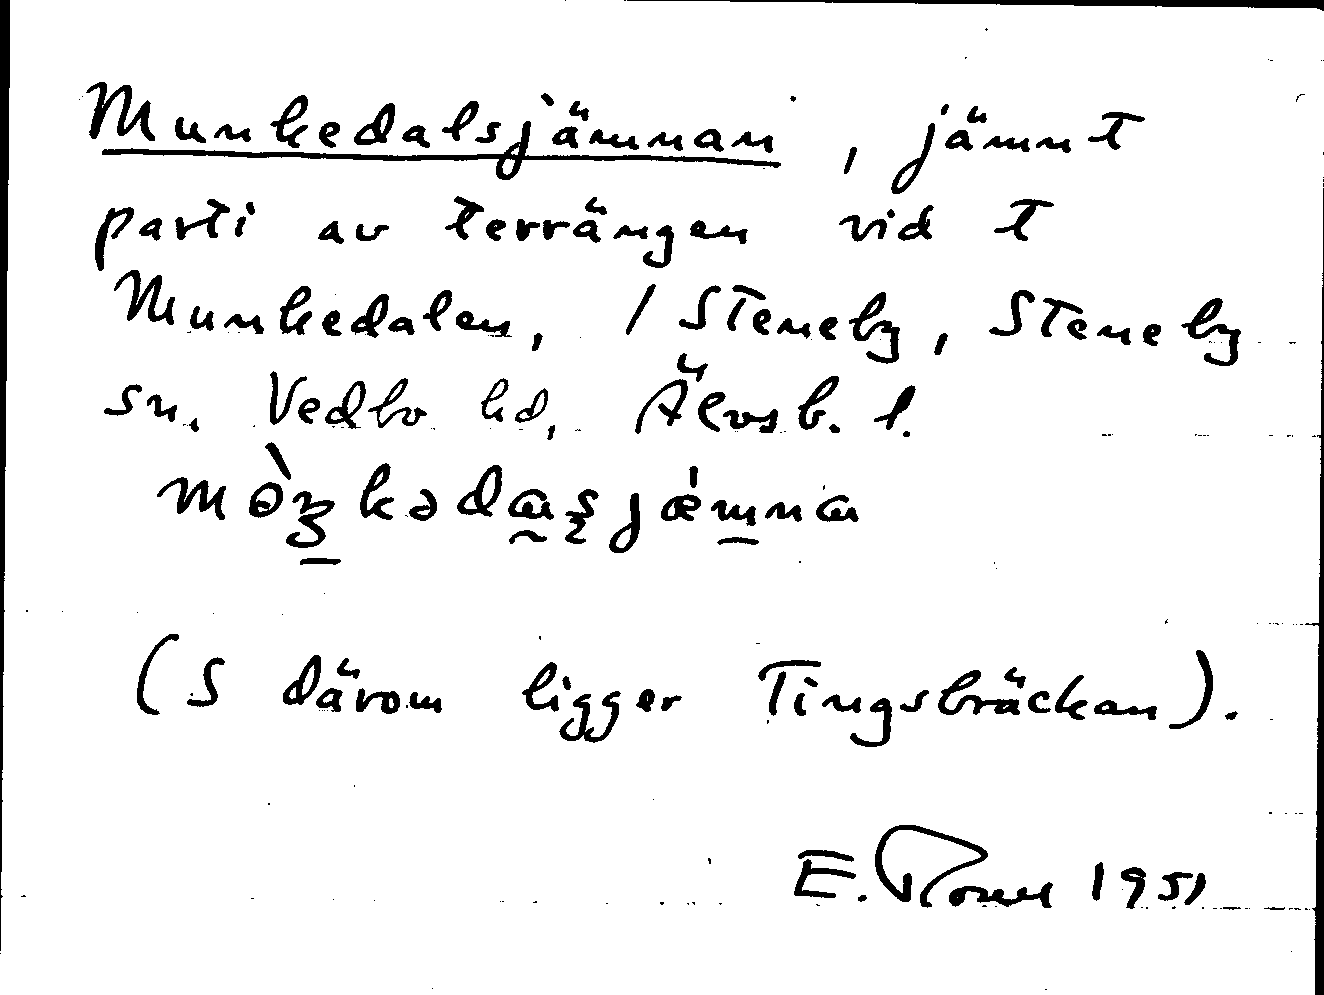 Munkedalsjämnan, jämnt
parti av terrängen vid t
Munkedalen, / Steneby, Steneby
sn. Vedbo hd, Älvsb. l.
(S därom ligger Tingsbräckan).
E. 1951